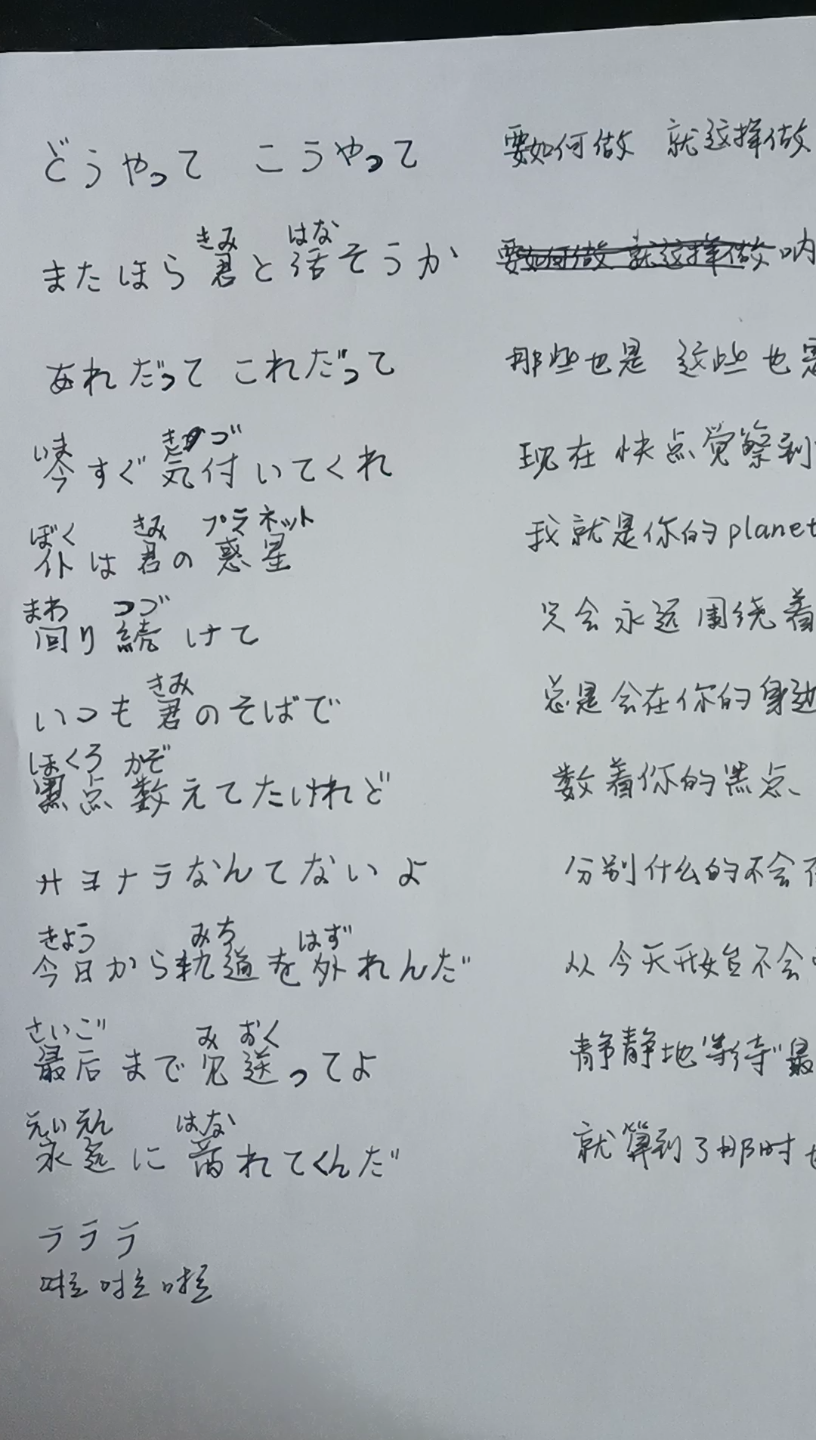 どうやって こうやって 要如何做 就这样做
きみ はな
またほら君と话そうか 要如何做 就这样做 呐
あれだって これだって 那些也是 这些也
いま きづ
今すぐ気付いてくれ 现在 快点觉察到
ぼく きみ プラネット
仆は君の惑星 我就是你的planet
まわ つづ
回り続けて 只会永远围绕着
きみ
いつも君のそばで 总是会在你的身边
ほくろ かぞ
黒点数えてたけれど 数着你的黑点、
サヨナラなんてないよ 分别什么的不会
きょう みち はず
今日から軌道を外れんだ 从今天开始不会
さいご み おく
最后まで见送ってよ 静静地等待"最
えいえん はな
永远に离れてくんだ 就算到了那时
ラララ
啦啦啦